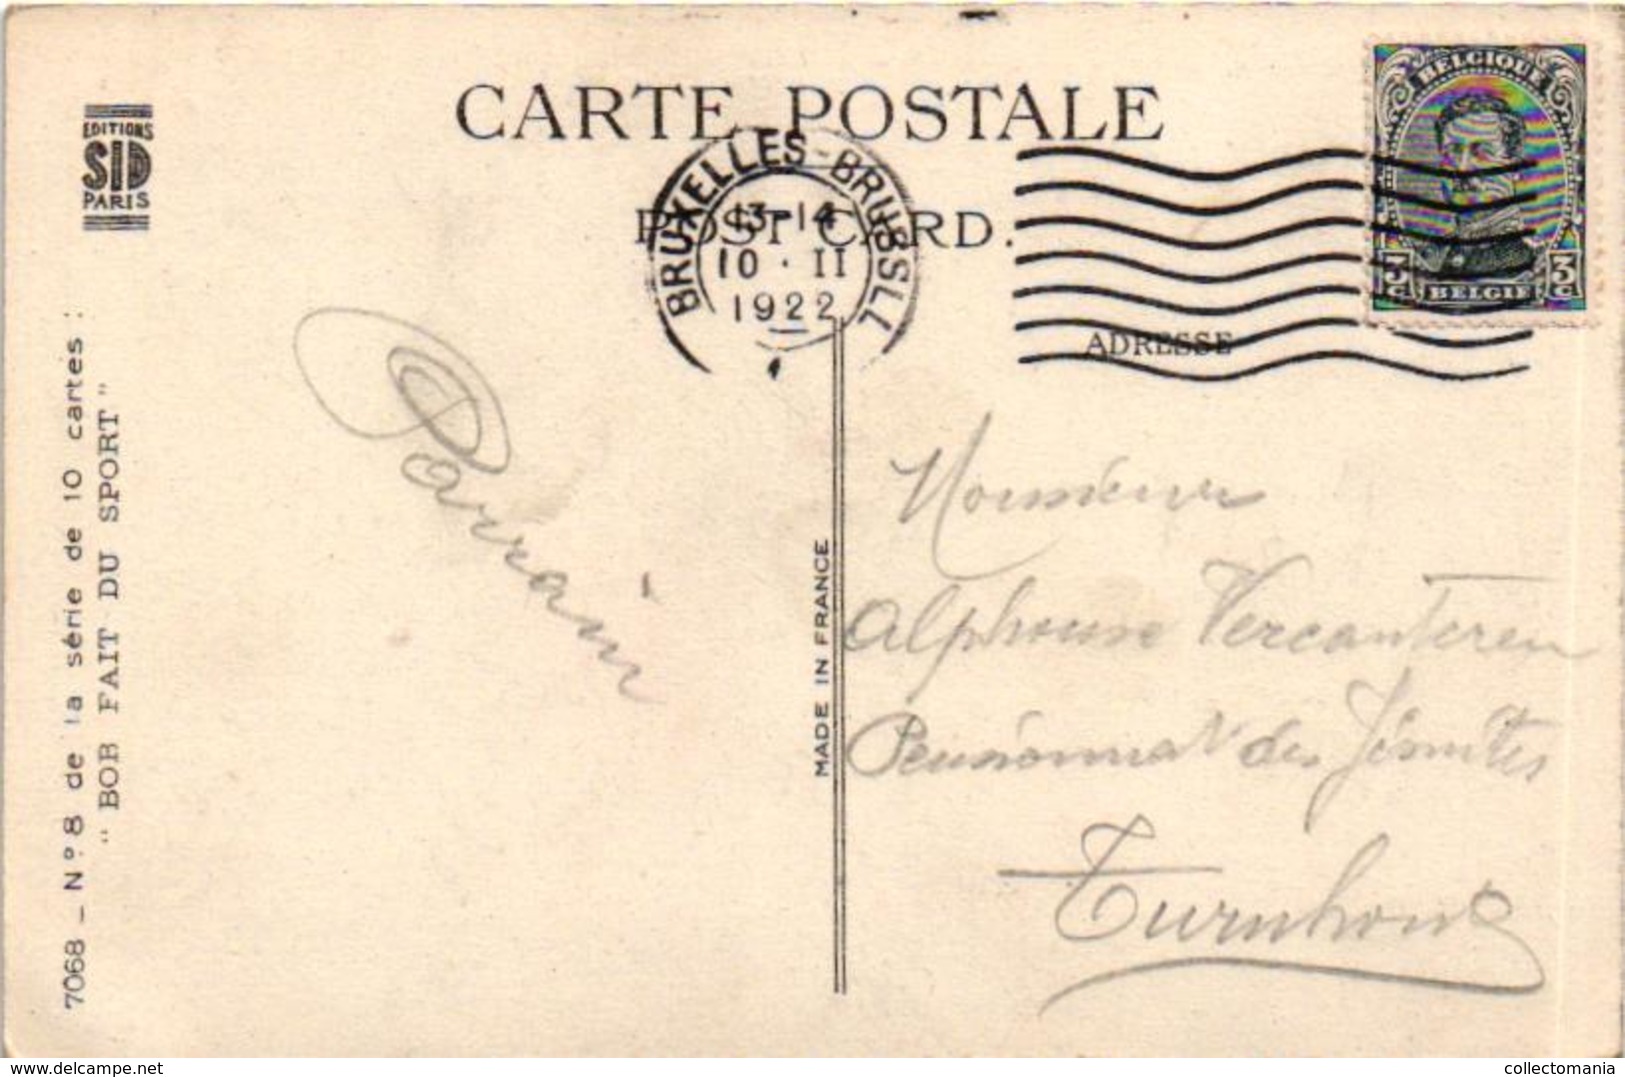 CARTE POSTALE
POST CARD.
EDITIONS
SID
PARIS
BRUXELLES-BRUSSEL
13-14
10 · II
1922
BELGIQUE
3 C
3 C
BELGIË
ADRESSE
7068 – Nº 8 de la série de 10 cartes :
“ BOB FAIT DU SPORT ”
MADE IN FRANCE
Parrain
Monsieur
Alphonse Vercauteren
Pensionnat des Jésuites
Turnhout
delcampe.net
collectomania